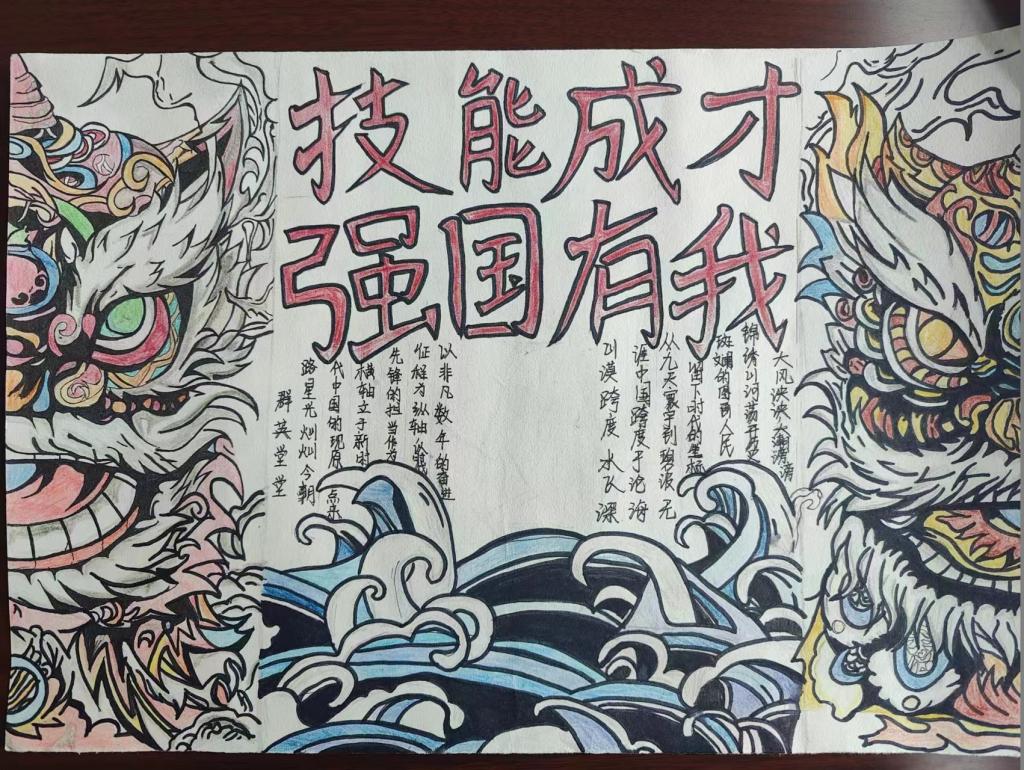 技能成才
强国有我
大风泱泱大潮滂滂
锦绣山河荡开
斑斓的图画人民
留下时代的坐标
从九天寰宇到碧浪无
涯中国跨度于沧海
川漠跨度水飞深
以非凡数年的奋进
征程为纵轴以
先锋的担当作为
横轴立于新时
代中国的现原点来
路星光灿灿今朝
群英堂堂